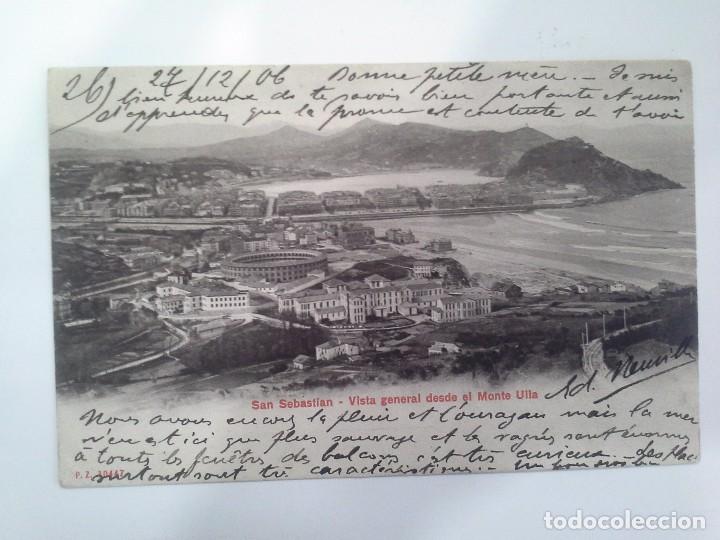 26) 27/12/06 Bonne petite mère. - Je suis
bien heureux de te savoir bien portante et aussi
d'apprendre que la prome est contente de t'avoir
San Sebastian - Vista general desde el Monte Ulia
Ad.
Nous avons encore la pluie et l'ouragan mais la mer
n'en est ici que plus sauvage et la vagues sont énormes
à toutes les fenêtres des balcons c'est très curieux. les
surtout sont très caractéristiques. - Un bon
P. Z. 10447
todocoleccion.net